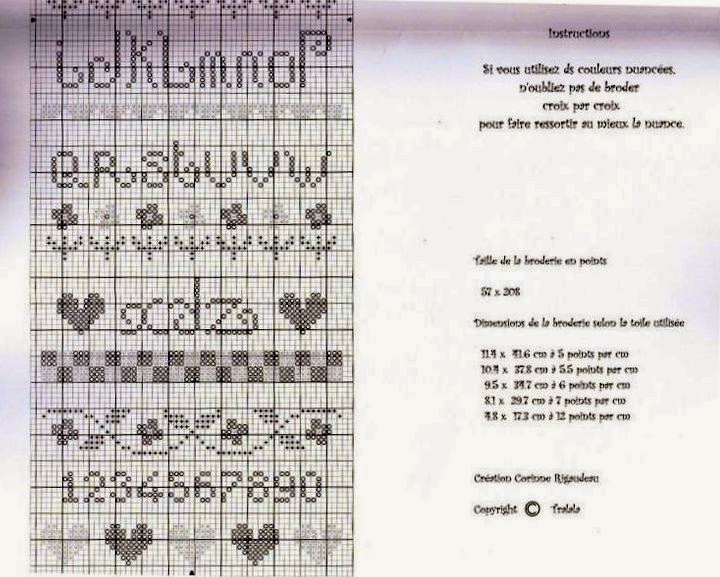 IJKLMNOP
QRSTUVW
xyz
1234567890
Instructions
Si vous utilisez ds couleurs nuancées,
n'oubliez pas de broder
croix par croix
pour faire ressortir au mieux la nuance.
Taille de la broderie en points
57 x 208
Dimensions de la broderie selon la toile utilisée
11.4 x 41.6 cm à 5 points par cm
10.4 x 37.8 cm à 5.5 points par cm
9.5 x 34.7 cm à 6 points par cm
8.1 x 29.7 cm à 7 points par cm
4.8 x 17.3 cm à 12 points par cm
Création Corinne Rigaudeau
Copyright © Tralala